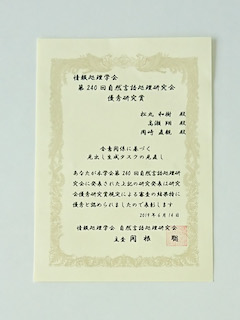 情報処理学会
第240回自然言語処理研究会
優秀研究賞
松丸 和樹 殿
高瀬 翔 殿
岡崎 直観 殿
含意関係に基づく
見出し生成タスクの見直し
あなたが本学会第240回自然言語処理研
究会に発表された上記の研究発表は研究
会優秀研究賞規定による審査の結果特に
優秀と認められましたので表彰します
2019年6月14日
情報処理学会 自然言語処理研究会
主査 関根 聡